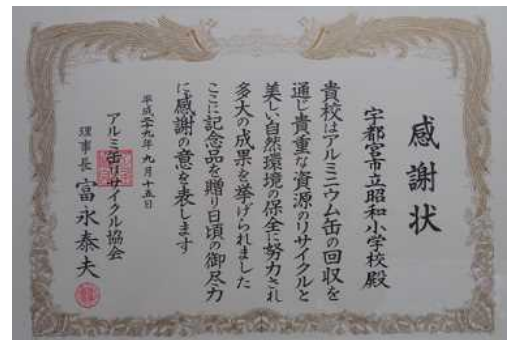 感謝状
宇都宮市立昭和小学校殿
貴校はアルミニウム缶の回収を
通じ貴重な資源のリサイクルと
美しい自然環境の保全に努力され
多大の成果を挙げられました
ここに記念品を贈り日頃の御尽力
に感謝の意を表します
平成二十九年九月十五日
アルミ缶リサイクル協会
理事長 富永泰夫